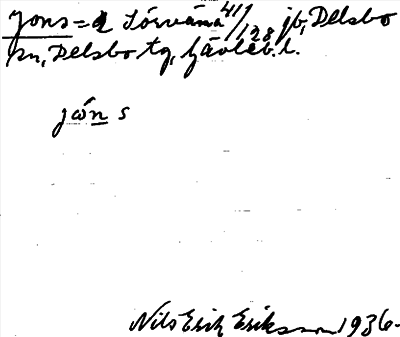 Jons = a Sörvänna 41/128 jb, Delsbo
sn, Delsbo tg, Gävleb. l.
jȯ́n s
Nils Erik Eriksson 1936.